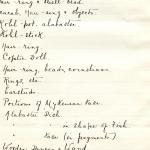 Hair-ring & shell bead.
Scarab, Hair-ring & objects.
Kohl-pot. alabaster.
Kohl-stick.
Hair-ring.
Coptic Doll.
Hair ring, beads, cornelians.
Rings, etc.
Earstuds.
Portions of Mykenean Vase.
Alabaster Dish.
" " in shape of Fish
" Vase (in fragments)
Wooden